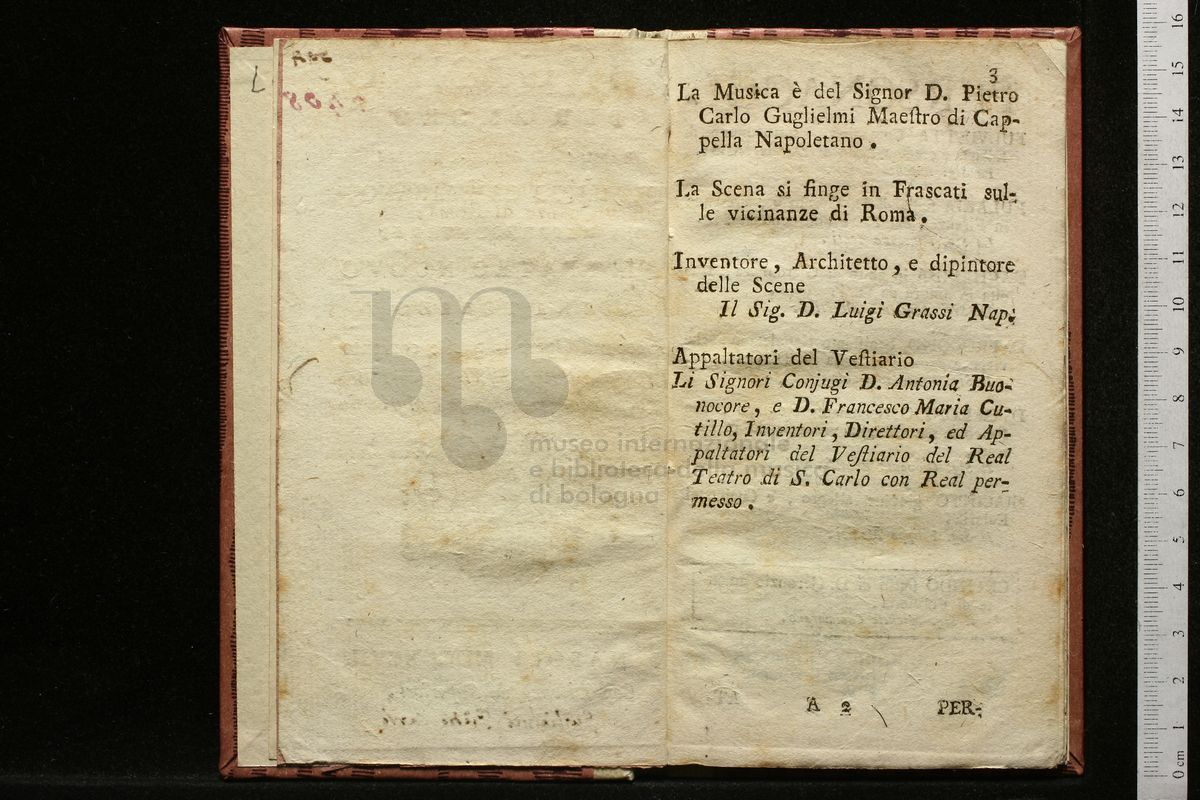 3
La Musica è del Signor D. Pietro
Carlo Guglielmi Maeſtro di Cap-
pella Napoletano .
La Scena si finge in Frascati sul-
le vicinanze di Roma .
Inventore , Architetto , e dipintore
delle Scene
Il Sig. D. Luigi Grassi Nap.
Appaltatori del Veſtiario
Li Signori Conjugi D. Antonia Buo-
nocore , e D. Francesco Maria Cu-
tillo, Inventori , Direttori , ed Ap-
paltatori del Veſtiario del Real
Teatro di S. Carlo con Real per-
messo .
A 2 PER-
museo internazionale
e biblioteca della musica
di bologna
0 cm 1 2 3 4 5 6 7 8 9 10 11 12 13 14 15 16